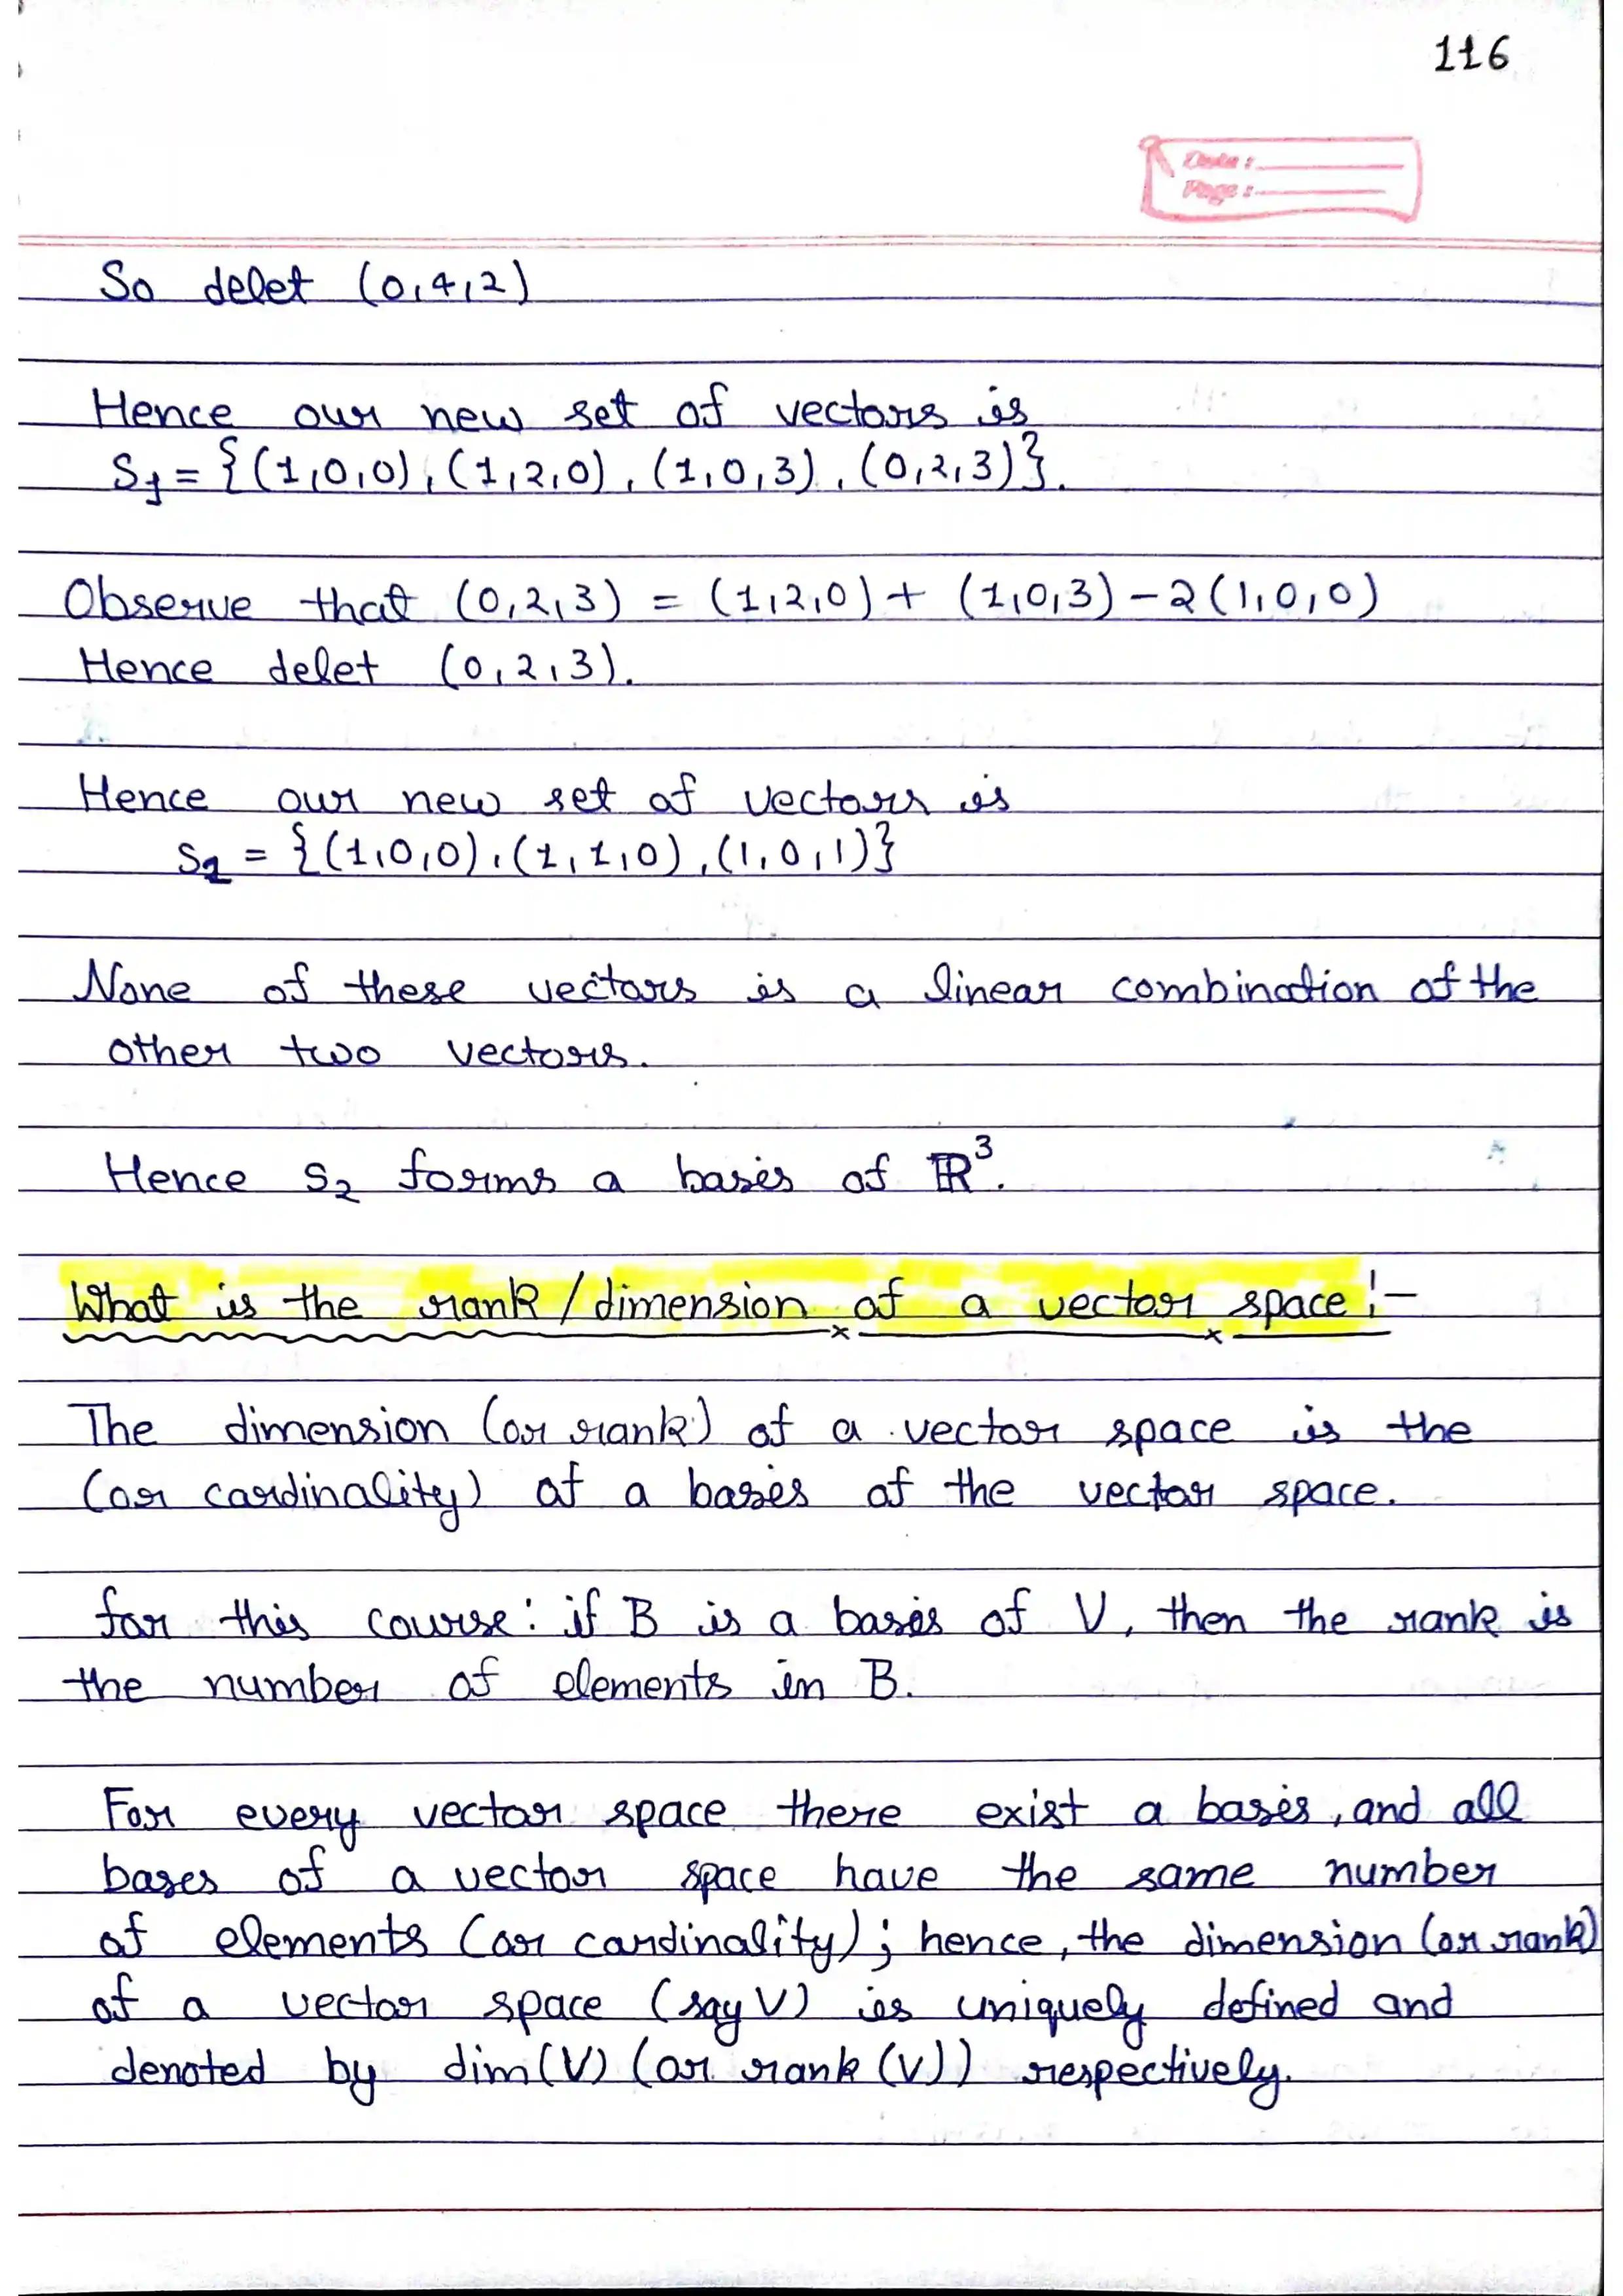 116
Date :
Page :
So delet (0,4,2)
Hence our new set of vectors is
S₁ = {(1,0,0), (1,2,0), (1,0,3), (0,2,3)}.
Observe that (0,2,3) = (1,2,0) + (1,0,3) - 2(1,0,0)
Hence delet (0,2,3).
Hence our new set of vectors is
S₂ = {(1,0,0), (1,1,0), (1,0,1)}
None of these vectors is a linear combination of the
other two vectors.
Hence S₂ forms a basis of ℝ³.
What is the rank / dimension of a vector space :-
The dimension (or rank) of a vector space is the
(or cardinality) of a bases of the vector space.
for this course: if B is a basis of V, then the rank is
the number of elements in B.
For every vector space there exist a basis, and all
bases of a vector space have the same number
of elements (or cardinality); hence, the dimension (or rank)
of a vector space (say V) is uniquely defined and
denoted by dim(V) (or rank (V)) respectively.